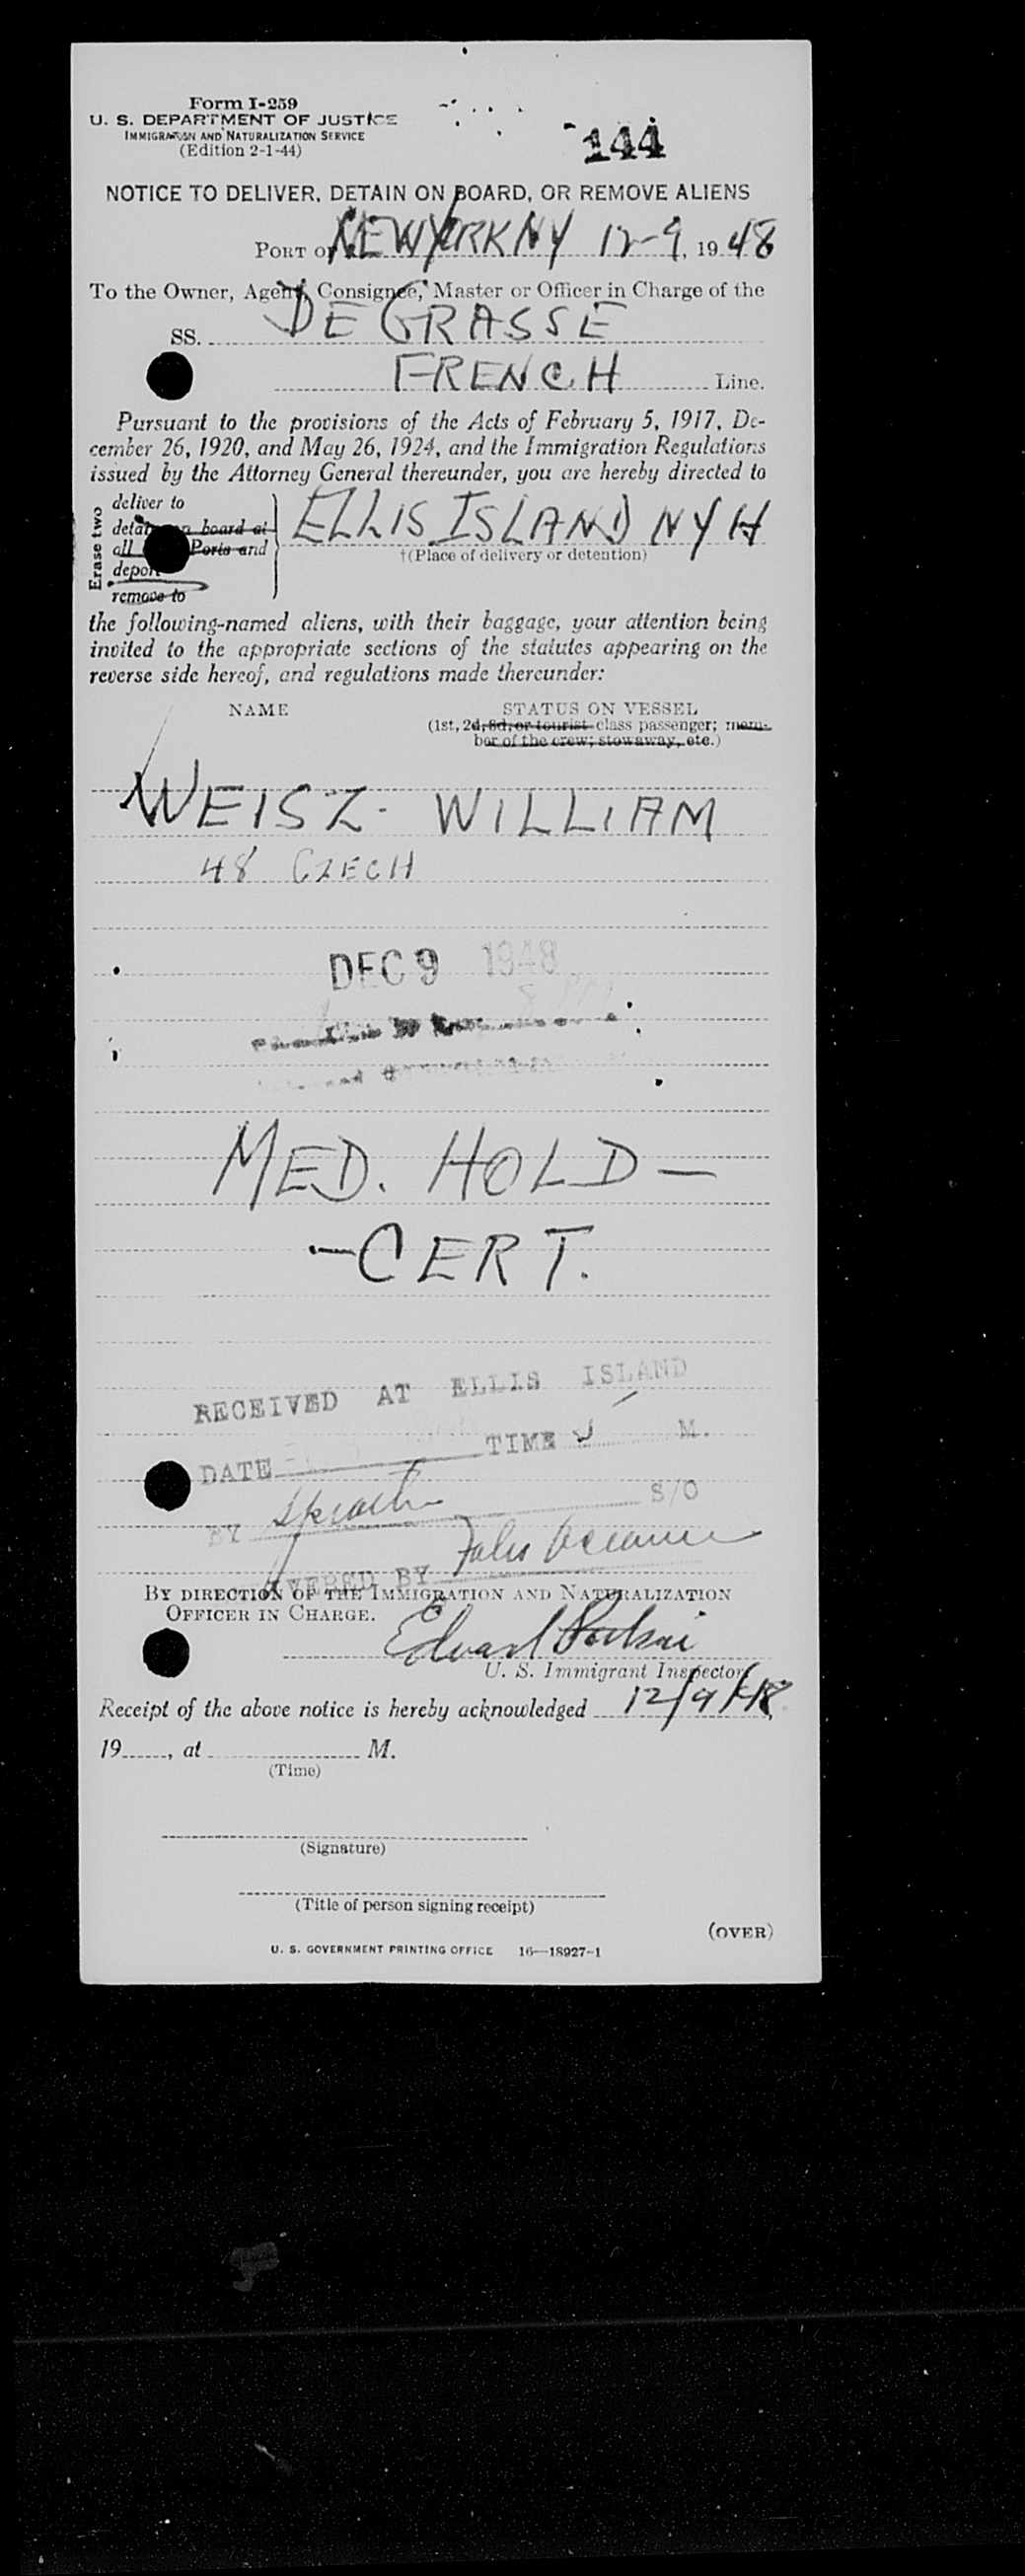 Form I-259
U. S. DEPARTMENT OF JUSTICE
IMMIGRATION AND NATURALIZATION SERVICE
(Edition 2-1-44)
144
NOTICE TO DELIVER, DETAIN ON BOARD, OR REMOVE ALIENS
PORT OF NEW YORK NY 12-9, 1948
To the Owner, Agent, Consignee, Master or Officer in Charge of the
SS. DE GRASSE
FRENCH Line.
Pursuant to the provisions of the Acts of February 5, 1917, De-
cember 26, 1920, and May 26, 1924, and the Immigration Regulations
issued by the Attorney General thereunder, you are hereby directed to
Erase two
deliver to
detain on board at
all Ports and
deport
remove to
ELLIS ISLAND NYH
†(Place of delivery or detention)
the following-named aliens, with their baggage, your attention being
invited to the appropriate sections of the statutes appearing on the
reverse side hereof, and regulations made thereunder:
NAME STATUS ON VESSEL
(1st, 2d, 3d, or tourist class passenger; mem-
ber of the crew; stowaway, etc.)
WEISZ - WILLIAM
48 CZECH
DEC 9 1948
MED. HOLD —
— CERT.
RECEIVED AT ELLIS ISLAND
DATE TIME M.
BY S/O
BY
BY DIRECTION OF THE IMMIGRATION AND NATURALIZATION
OFFICER IN CHARGE.
Edward
U. S. Immigrant Inspector
Receipt of the above notice is hereby acknowledged 12/9/48,
19, at M.
(Time)
(Signature)
(Title of person signing receipt)
(OVER)
U. S. GOVERNMENT PRINTING OFFICE 16—18927-1